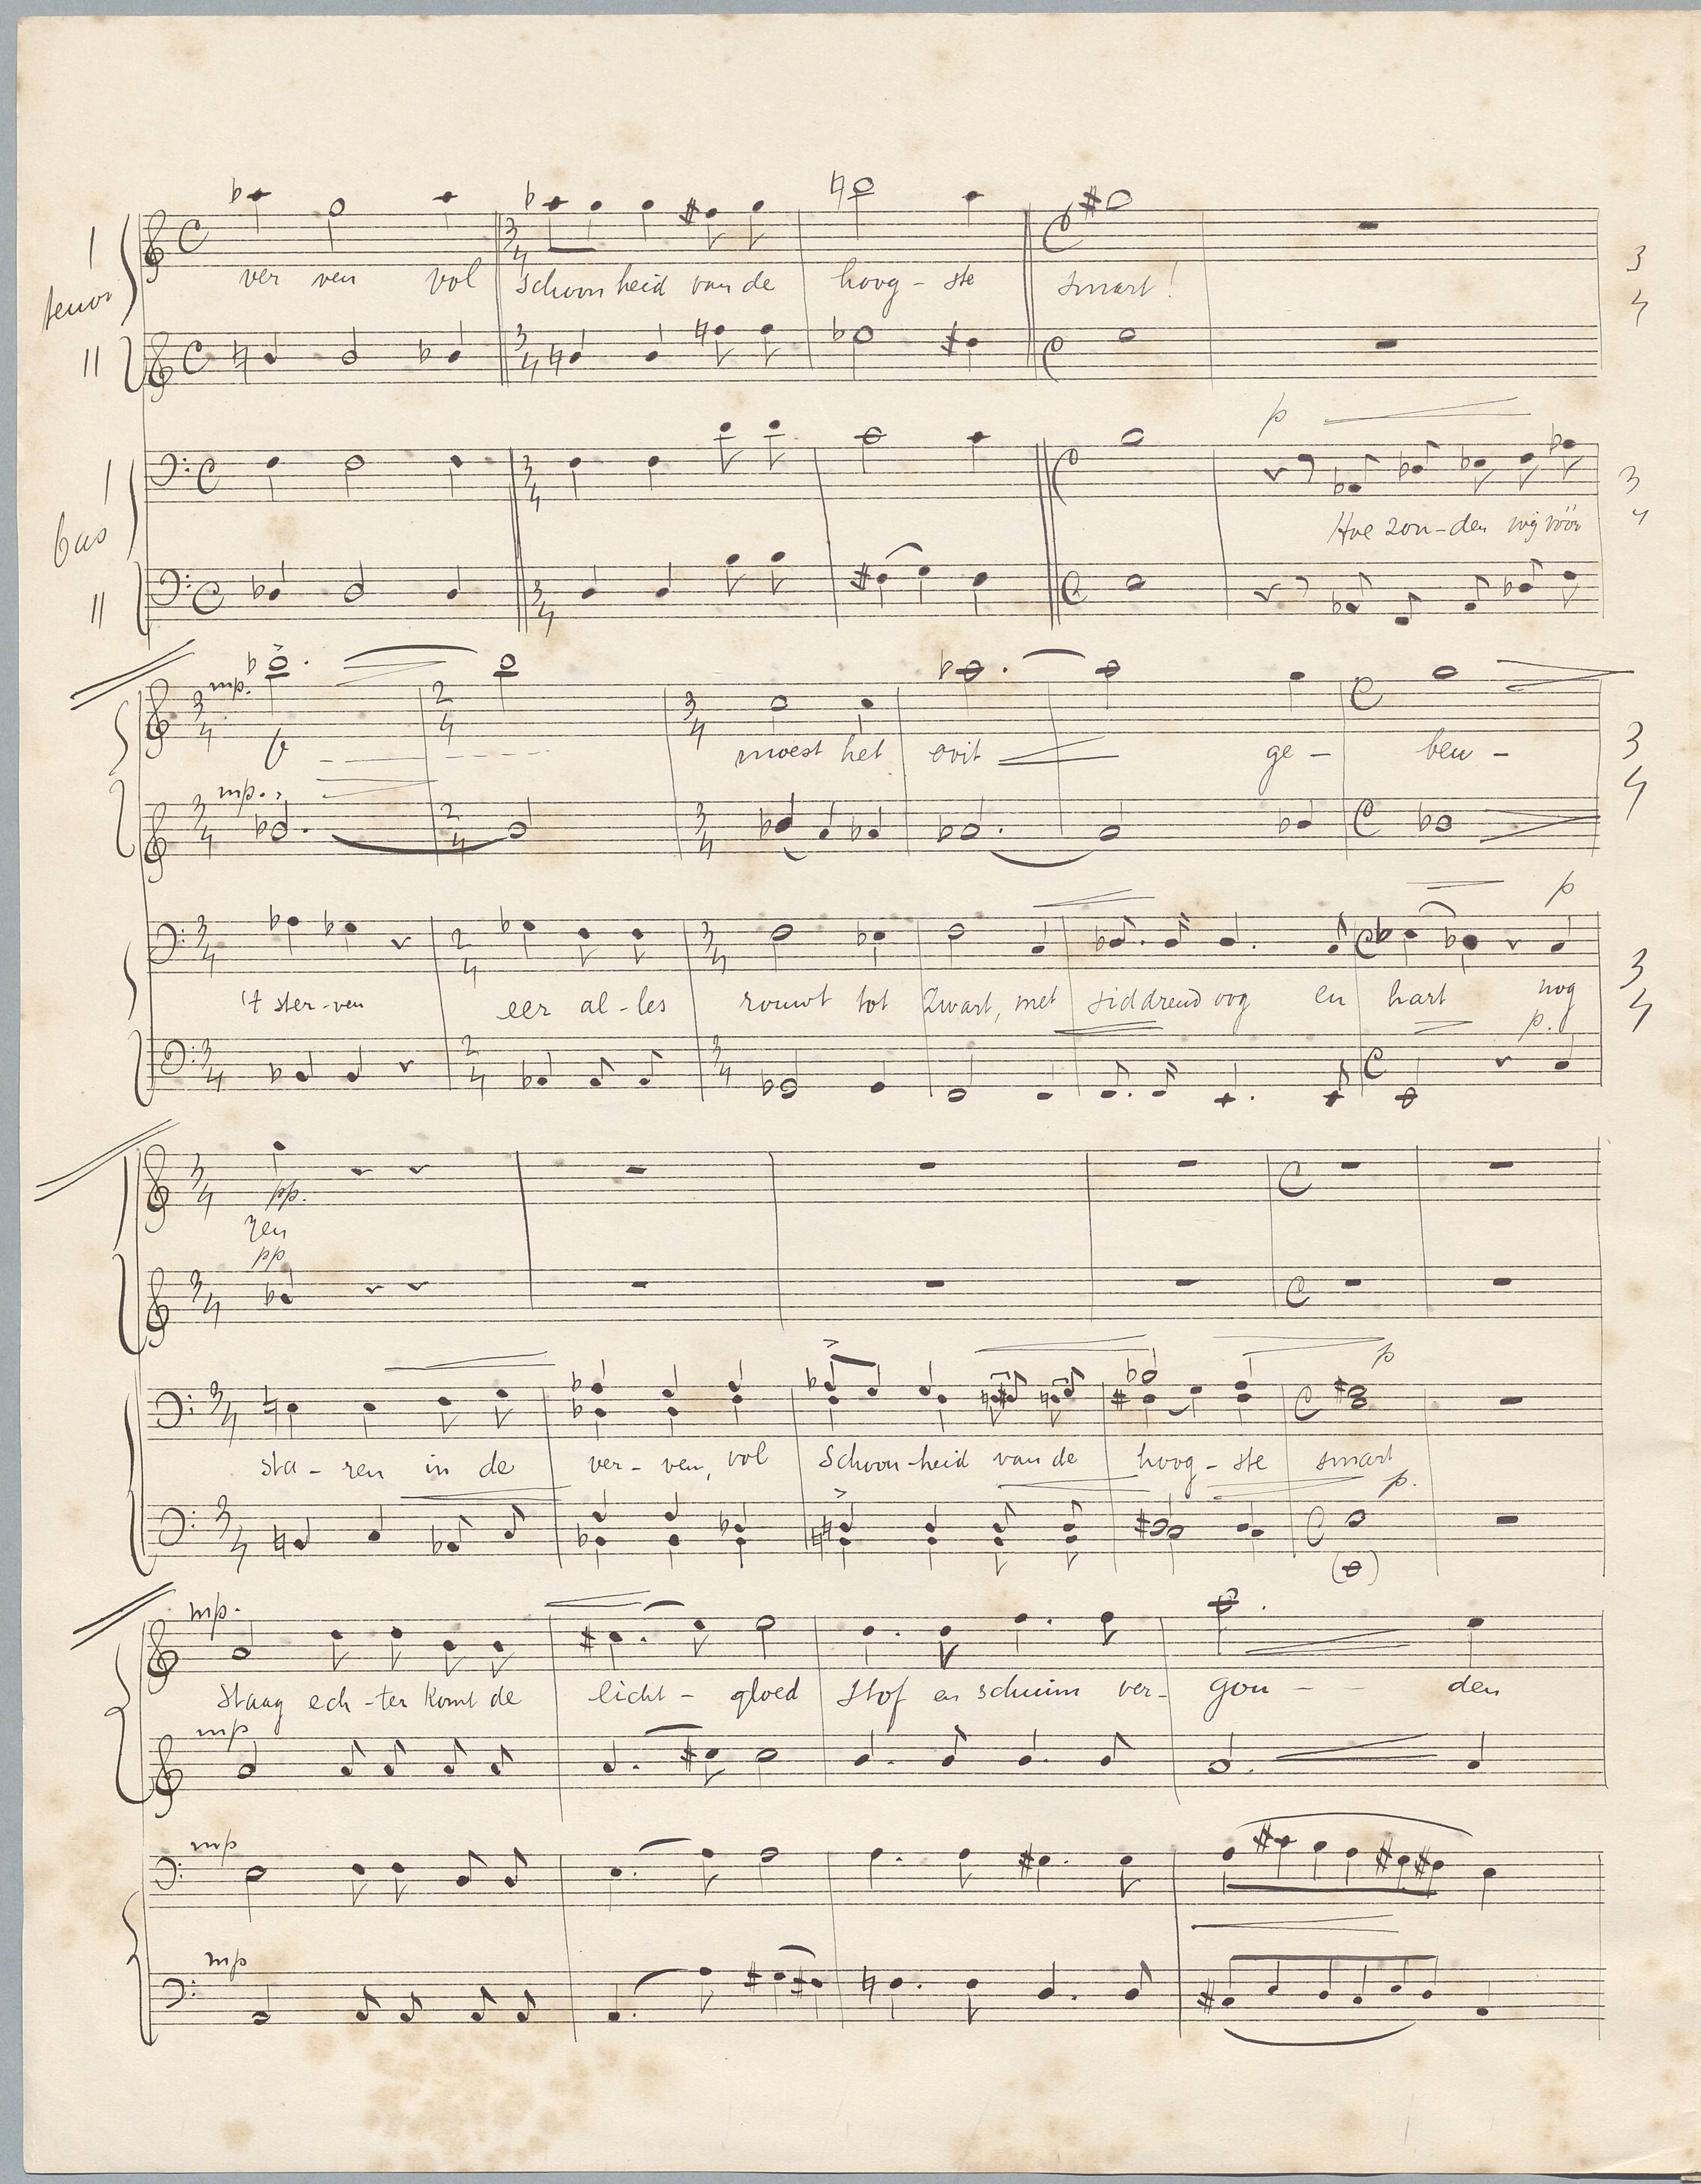 I
tenor
ver ven vol schoon heid van de hoog - ste smart!
3
4
II
p
I
bas
Hoe zou - den wij vóór
3
4
II
mp.
O moest het ooit ge - beu -
3
4
mp.
p
't ster - ven eer al - les rouwt tot zwart, met siddrend oog en hart nog
3
4
p.
pp.
zen
pp
p
sta - ren in de ver - ven, vol schoon - heid van de hoog - ste smart
p.
mp.
Staag ech - ter komt de licht - gloed Stof en schuim ver - gou - - den
mp
mp
mp